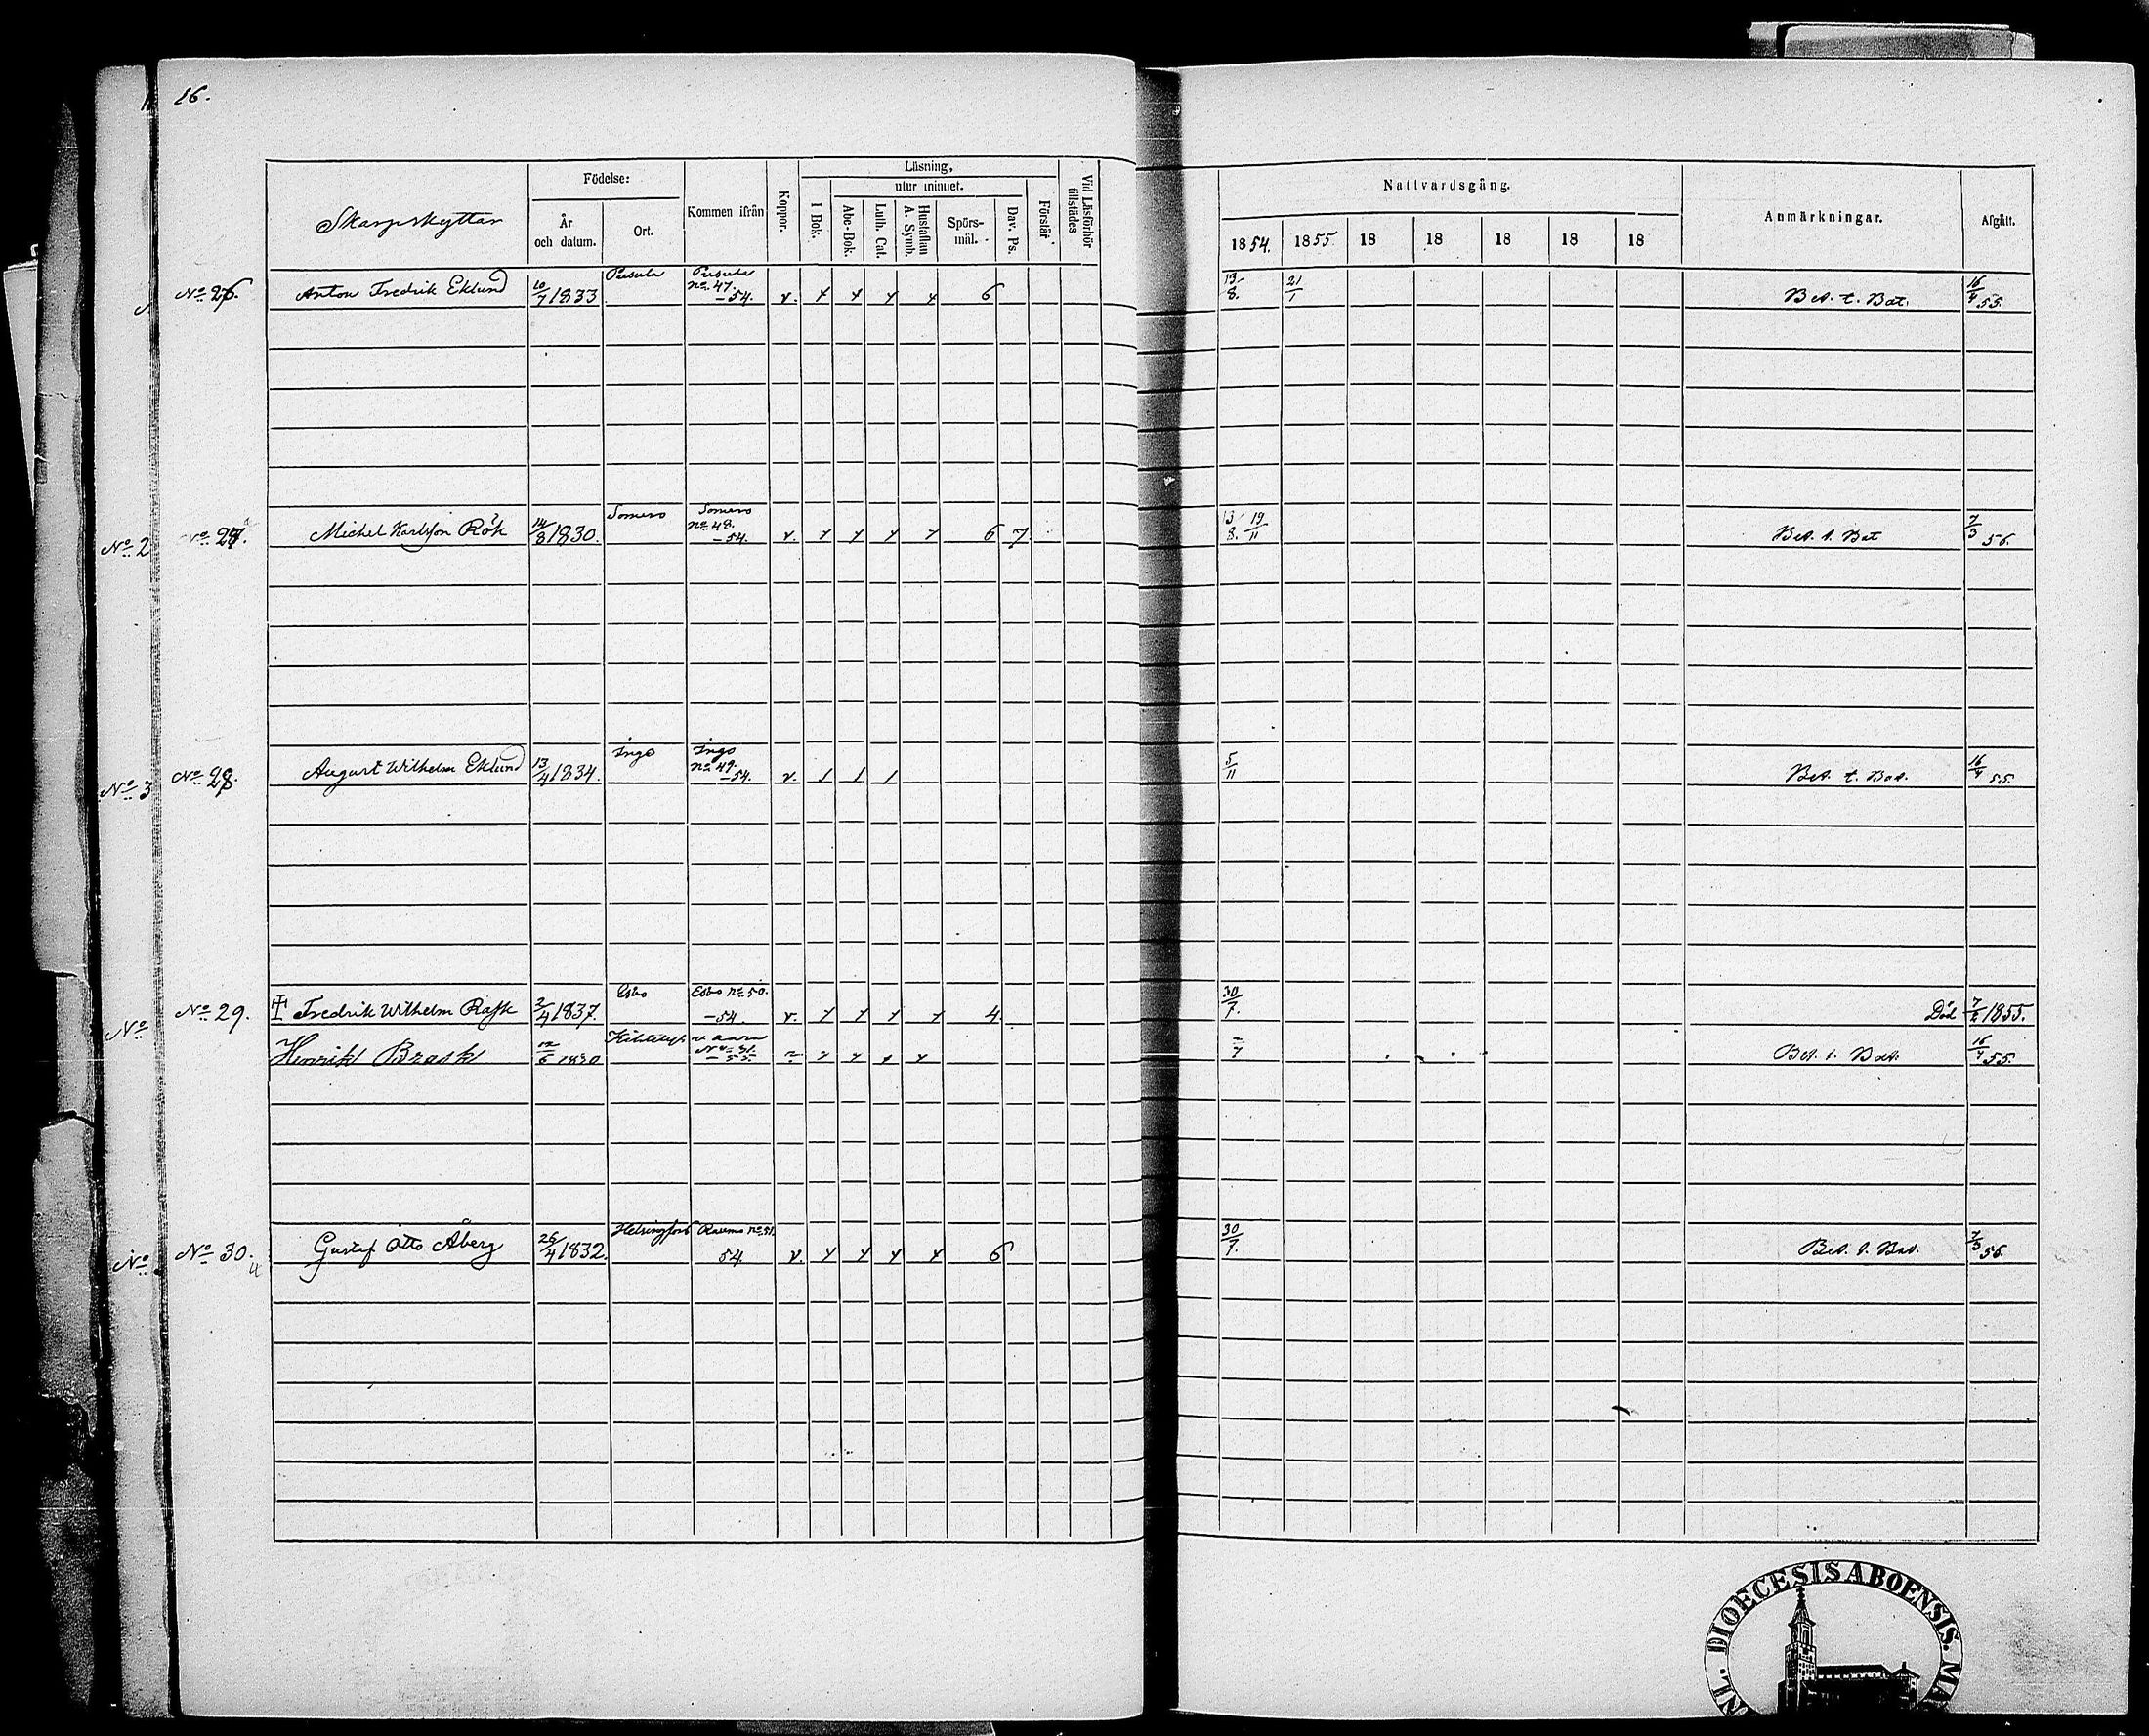 16.
Skarpskyttar
Födelse:
År och datum.
Ort.
Kommen ifrån
Koppor.
Läsning,
utur minnet.
I Bok.
Abc-Bok.
Luth. Cat.
Hustaflan A. Symb.
Spörs-mål.
Dav. Ps.
Förstår
Vid Läsförhör tillstädes
Nattvardsgång.
1854. 1855. 18 18 18 18 18
Anmärkningar.
Afgått.
No 26. Anton Fredrik Eklund 10/7 1833 Pusula Pusula no 47. -54. v. 6 13/8. 21/1 Bet. t. Bat. 16/4 55.
No 27. Michel Karlsson Rök 14/8 1830. Somero Somero no 48. -54. v. 6 7 13/8. 19/11 Bet. t. Bat 7/3 56.
No 28. August Wilhelm Eklund 13/4 1834. Ingo Ingo no 49. -54. v. 5/11 Bet. t. Bat. 16/4 55.
No 29. Fredrik Wilhelm Rask 2/4 1837. Esbo Esbo no 50. -54. v. 4 30/7. Död 7/2 1855.
Henrik Brask 12/6 1830 Bet. t. Bat. 16/4 55.
No 30. Gustaf Otto Åberg 26/4 1832. Helsingfors no 51. 54 v. 6 30/7. Bet. t. Bat. 7/3 56.
No 2
No 3
No
No
DIOECESIS ABOENSIS.